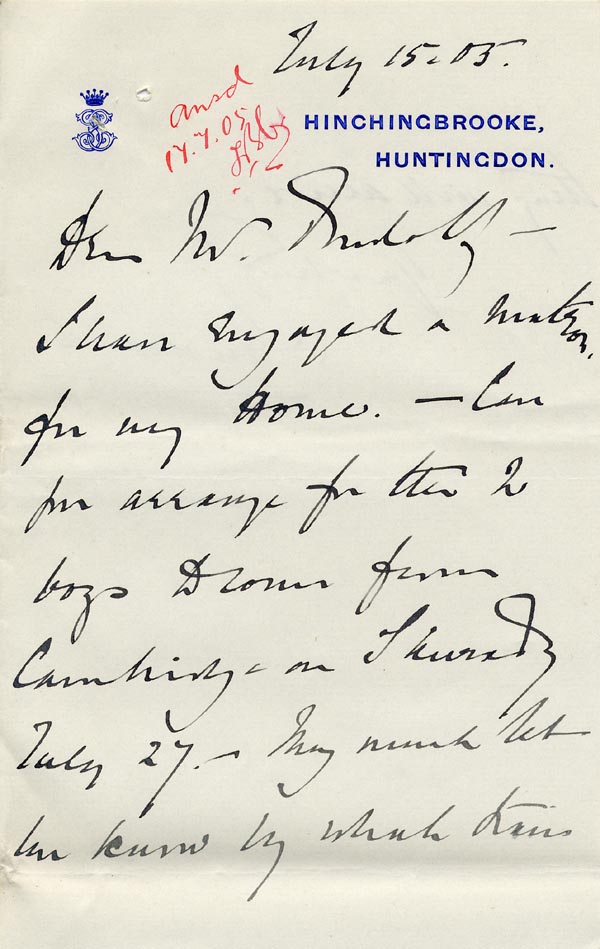 July 15.05.
ansd
17.7.05
HINCHINGBROOKE,
HUNTINGDON.
Dear Mr. Rudolf —
I have engaged a matron
for my Home. — Can
you arrange for the 2
boys to come from
Cambridge on Thursday
July 27. — They must let
me know by what train